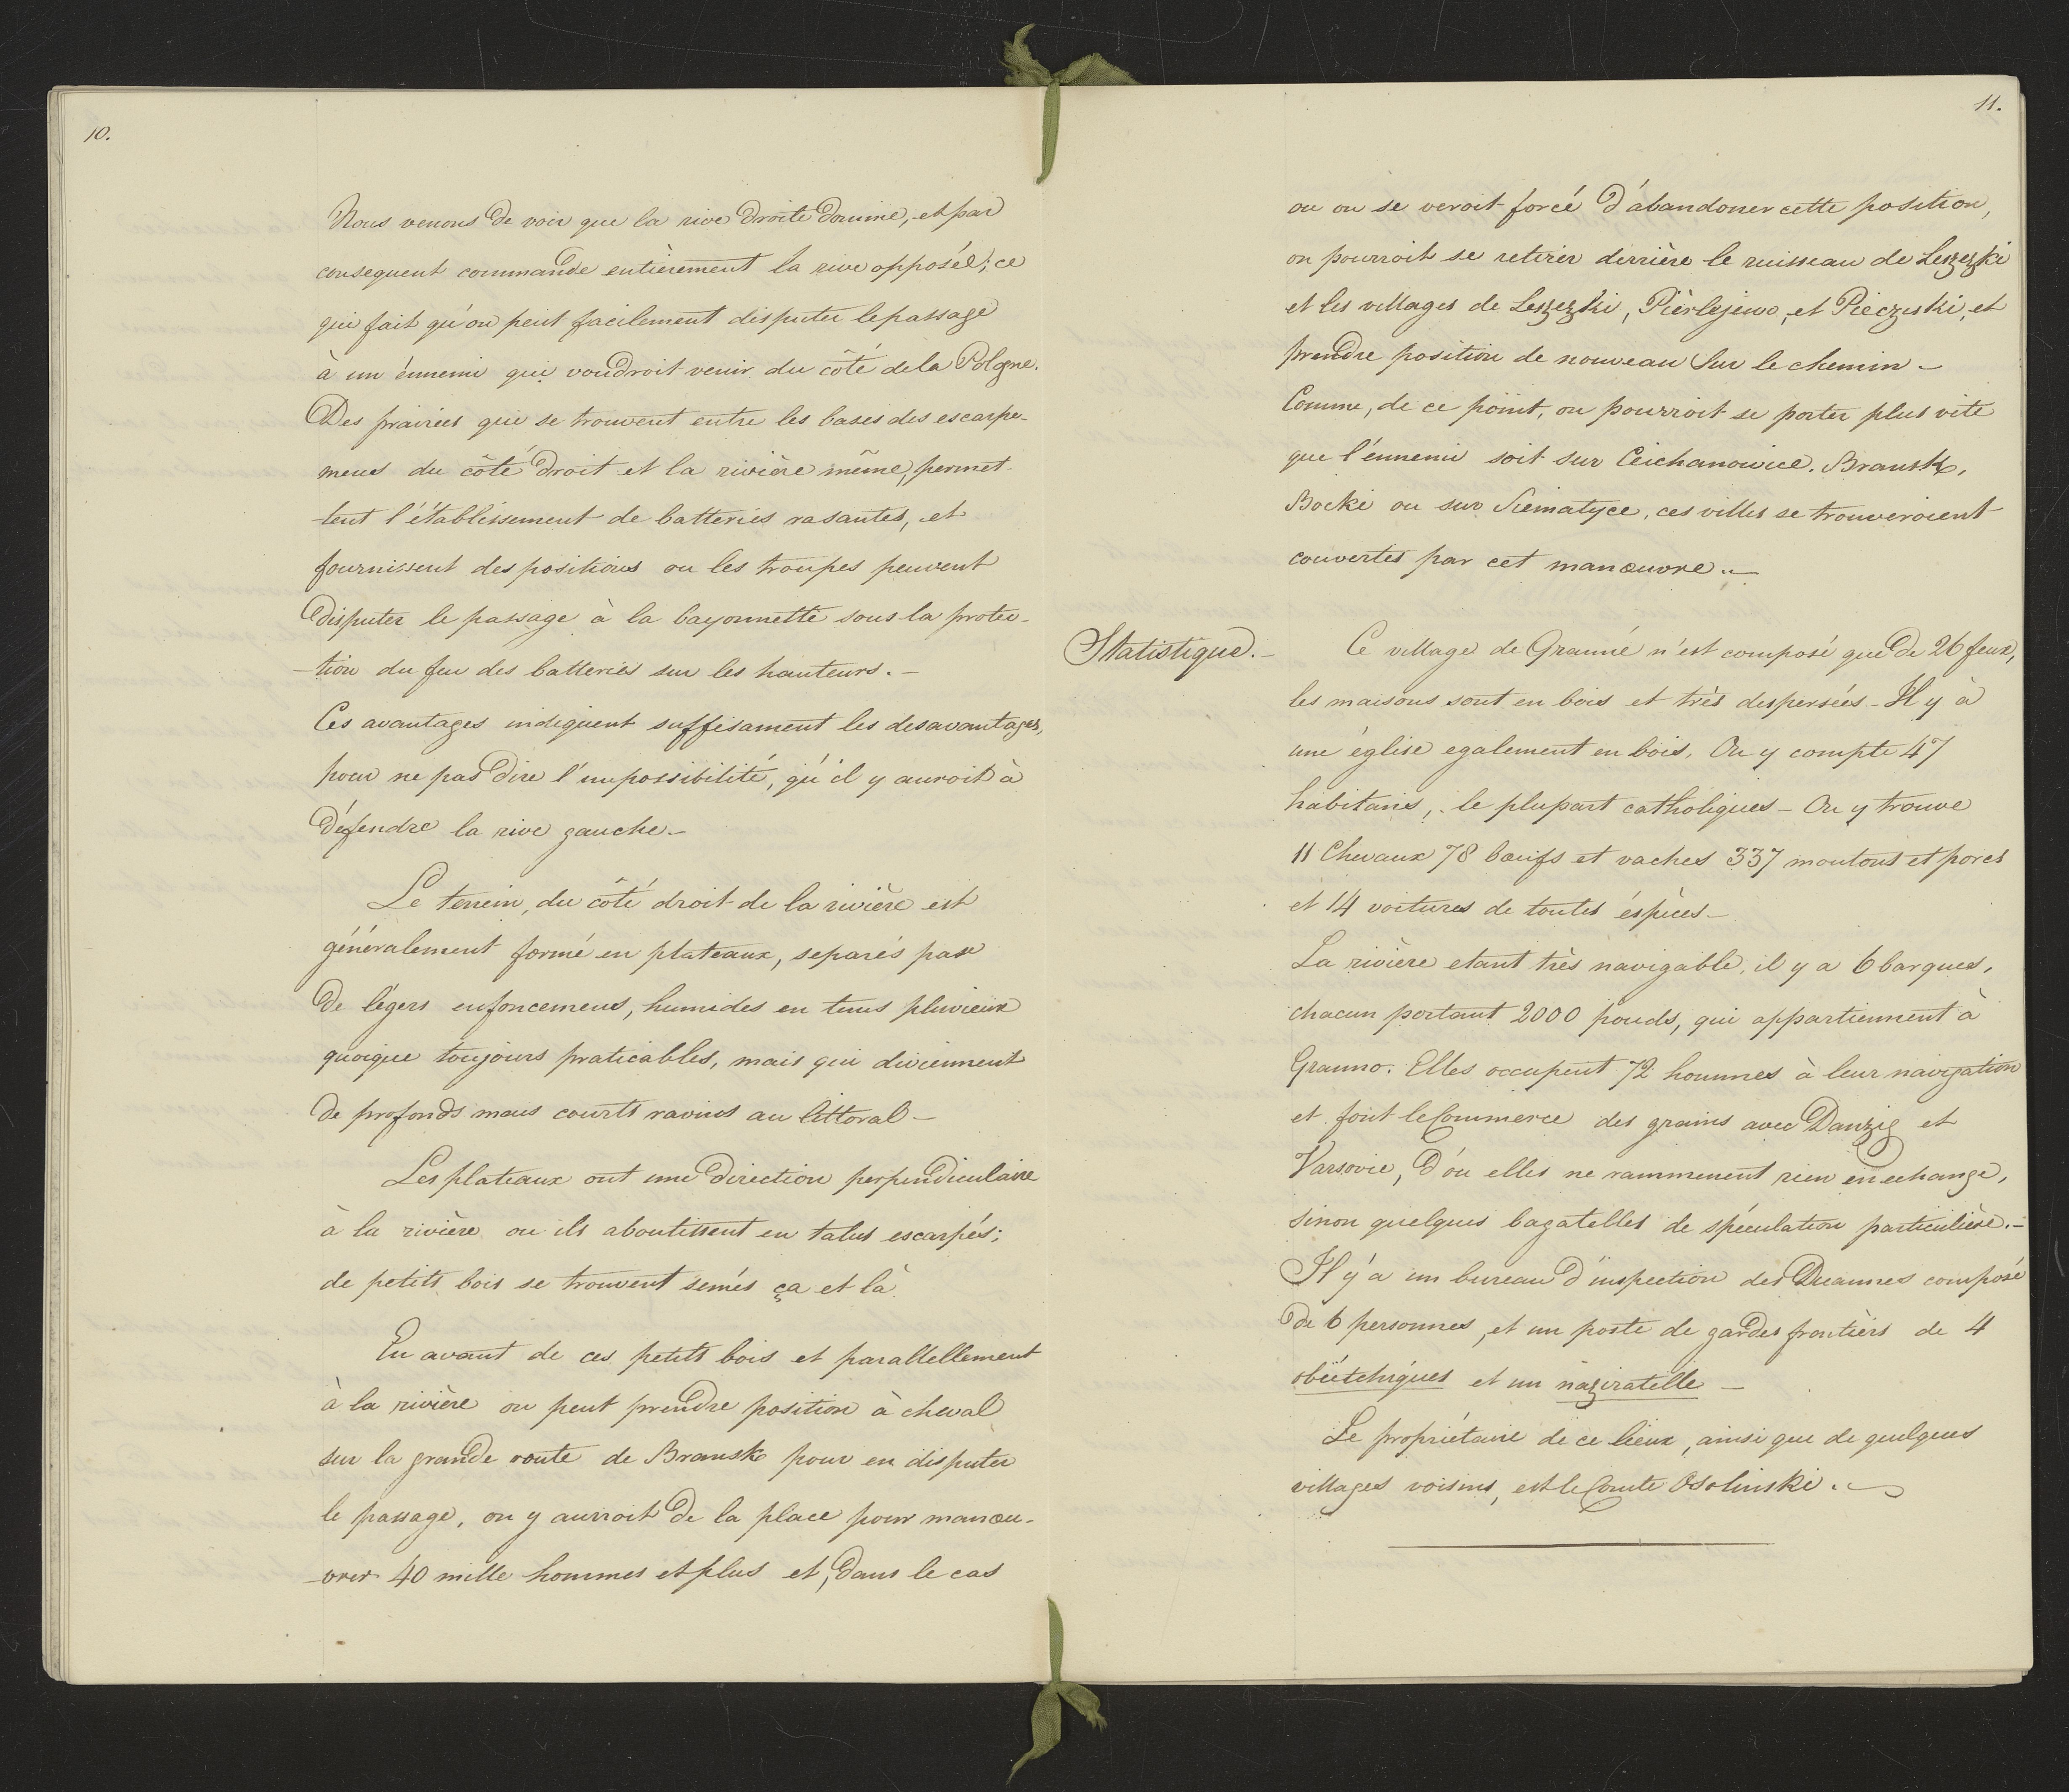 10.
Nous venons de voir que la rive droite domine, et par
consequent commande entièrement la rive opposée; ce
qui fait qu'on peut facilement disputer le passage
à un énnemi qui voudroit venir du côté de la Pologne.
Des prairies qui se trouvent entre les bases des escarpe-
mens du côté droit et la rivière même, permet-
-tent l'établissement de batteries rasantes, et
fournissent des positions ou les troupes peuvent
disputer le passage à la bayonnette sous la protec-
-tion du feu des batteries sur les hauteurs.-
Ces avantages indiquent suffisament les desavantages,
pour ne pas dire l'impossibilité, qu'il y auroit à
défendre la rive gauche.-
Le terrein, du côté droit de la rivière est
généralement formé en plateaux, separés par
de légers enfoncemens, humides en tems pluvieux
quoique toujours praticables, mais qui diviennent
de profonds mais courts ravins au littoral -
Les plateaux ont une direction perpendiculaire
à la rivière ou ils aboutissent en talus escarpés;
de petits bois se trouvent semés ça et là.
En avant de ces petits bois et parallellement
à la rivière on peut prendre position à cheval
sur la grande route de Bransk pour en disputer
le passage, on y auroit de la place pour manœu-
-vrer 40 mille hommes et plus et, dans le cas
11.
ou on se veroit forcé d'abandoner cette position,
on pourroit se retirer derrière le ruisseau de Leszezki
et les villages de Leszezki, Pièrlejewo, et Pieczeski, et
prendre position de nouveau sur le chemin -
Comme, de ce point, on pourroit se porter plus vite
que l'énnemi soit sur Ceichanowice, Bransk,
Bocki ou sur Siematyce, ces villes se trouveroient
couvertes par cet manœuvre.-
Statistique.-
Ce village de Granné n'est composé que de 26 feux,
les maisons sont en bois et très despersées - Il y à
une église egalement en bois, On y compte 47
habitans, le plupart catholiques - On y trouve
11 Chevaux 78 bœufs et vaches 337 moutons et porcs
et 14 voitures de toutes éspèces -
La rivière etant très navigable, il y a 6 barques,
chacun portant 2000 pouds, qui appartiennent à
Granno. Elles occupent 72 hommes à leur navigation
et font le Commerce des grains avec Danzig et
Varsovie, d'ou elles ne rammenent rien en echange,
sinon quelques bagatelles de spéculation particulière.-
Il y'a un bureau d'inspection des Duannes composé
de 6 personnes, et un poste de gardes frontièrs de 4
obietchiques et un naziratelle -
Le propriétaire de ce lieux, ainsi que de quelques
villages voisins, est le Comte Osolinski.-